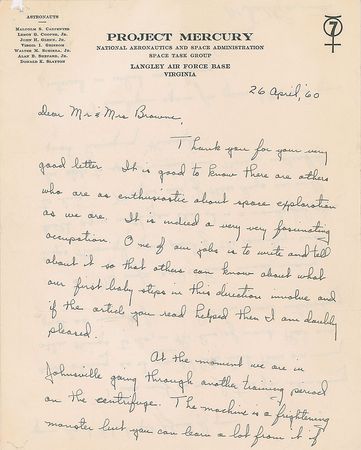 ASTRONAUTS
MALCOLM S. CARPENTER
LEROY G. COOPER, JR.
JOHN H. GLENN, JR.
VIRGIL I. GRISSOM
WALTER M. SCHIRRA, JR.
ALAN B. SHEPARD, JR.
DONALD K. SLAYTON
PROJECT MERCURY
NATIONAL AERONAUTICS AND SPACE ADMINISTRATION
SPACE TASK GROUP
LANGLEY AIR FORCE BASE
VIRGINIA
7
26 April, '60
Dear Mr & Mrs Browne,
Thank you for your very
good letter. It is good to know there are others
who are as enthusiastic about space exploration
as we are. It is indeed a very very fascinating
occupation. One of our jobs is to write and tell
about it so that others can know about what
our first baby steps in this direction involve and
if the article you read helped then I am doubly
pleased.
At the moment we are in
Johnsville going through another training period
on the centrifuge. The machine is a frightening
monster but you can learn a lot from it if